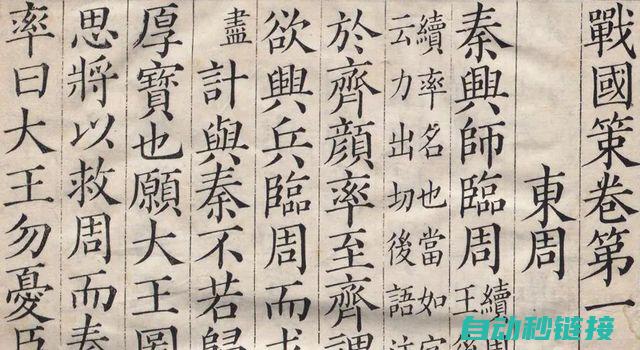 戰國策卷第一
東周
秦興師臨周
續
王
續率名也當如字
云力出切後語注
於齊顏率至齊謂
欲興兵臨周而求
盡計與秦不若歸
厚寶也願大王圖
思將以救周而秦
率曰大王勿憂臣
自动秒链接